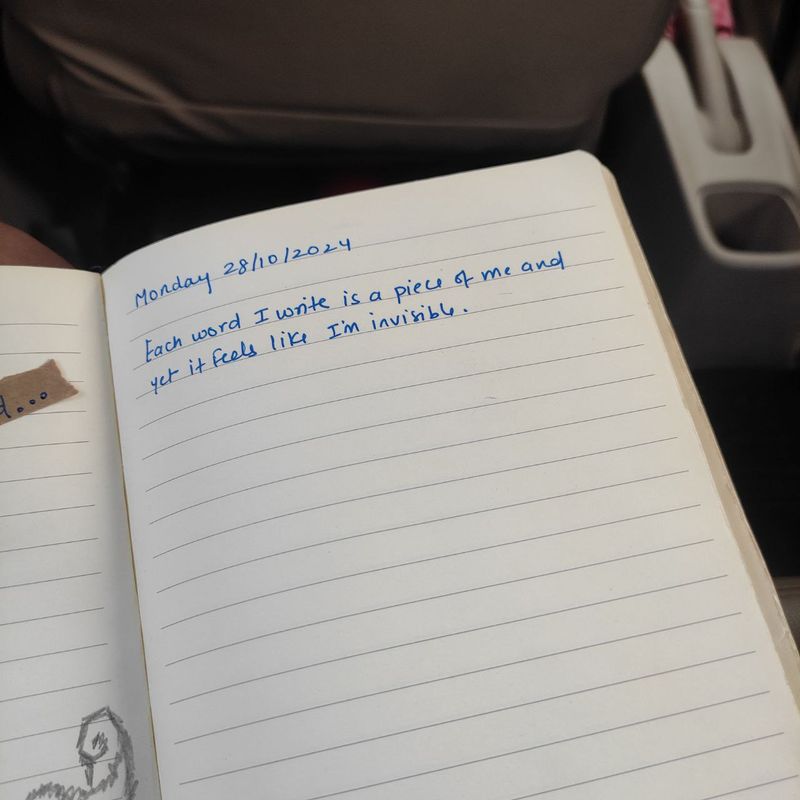 Monday 28/10/2024
Each word I write is a piece of me and
yet it feels like I'm invisible.